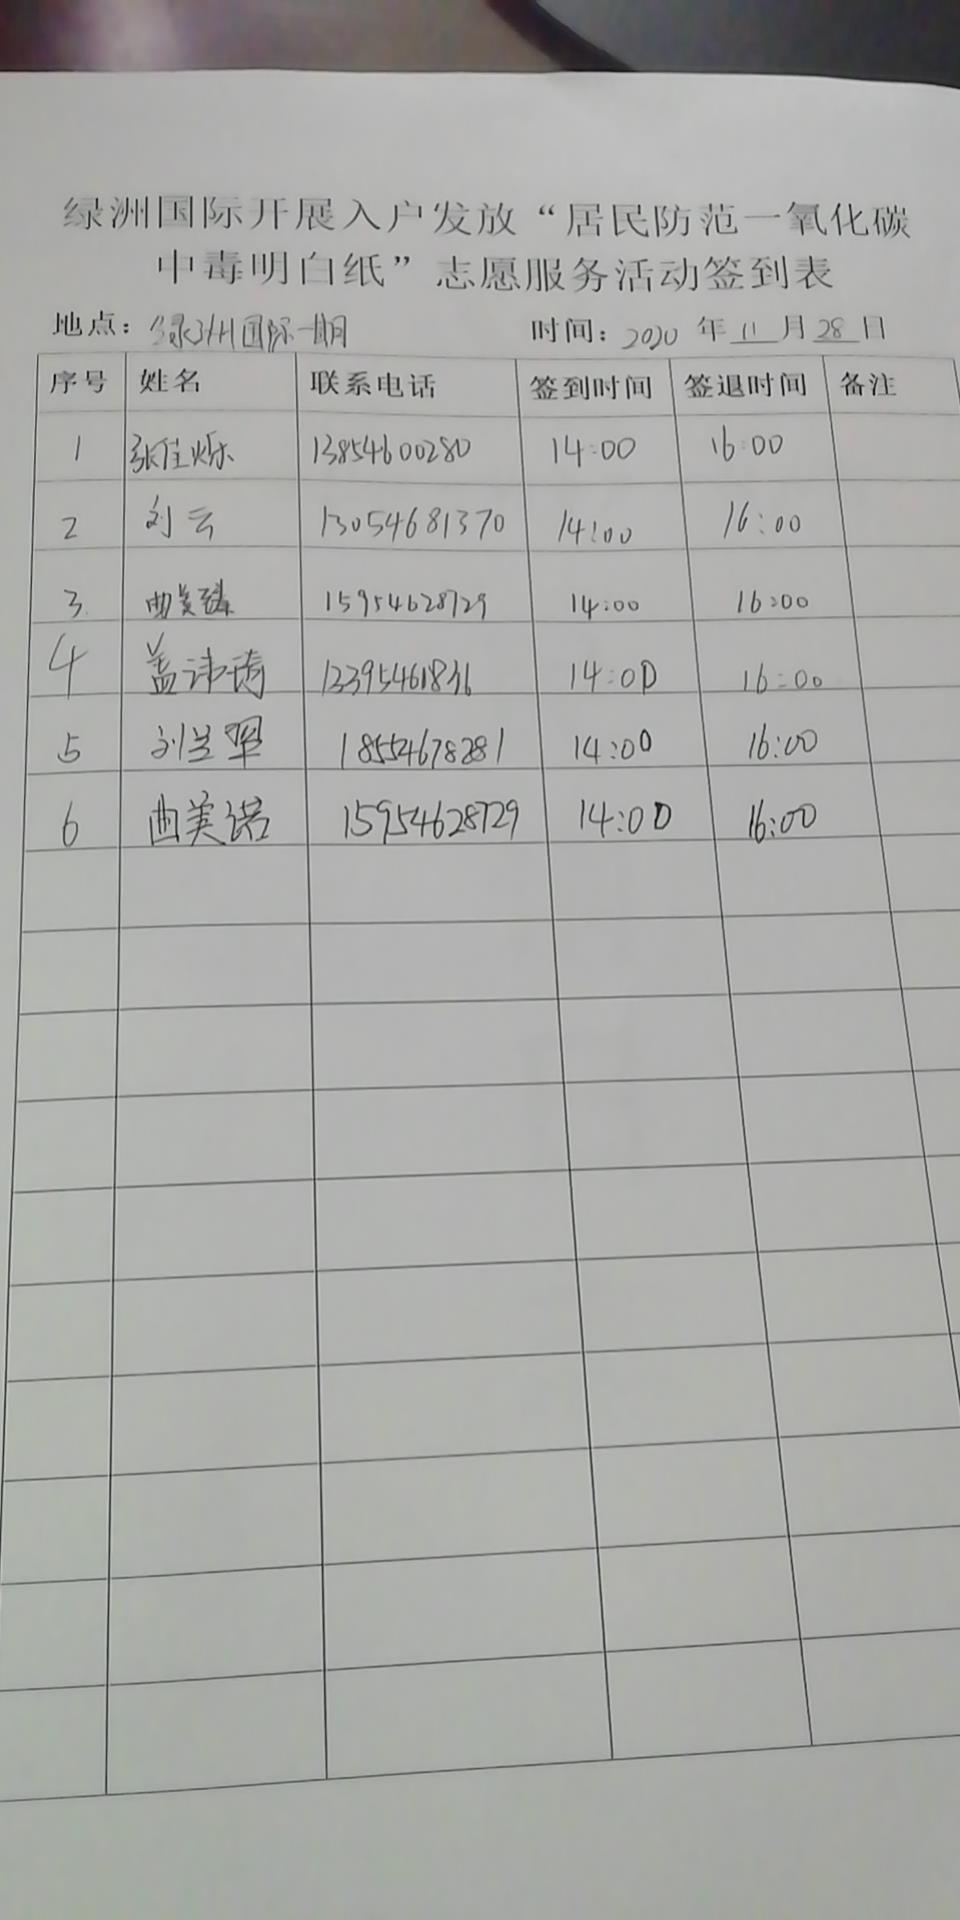 绿洲国际开展入户发放“居民防范一氧化碳
中毒明白纸”志愿服务活动签到表
地点：绿洲国际一期 时间：2020 年 11 月 28 日
序号 姓名 联系电话 签到时间 签退时间 备注
1 张佳烁 13854600280 14:00 16:00
2 刘云 13054681370 14:00 16:00
3 曲美璘 15954628729 14:00 16:00
4 盖讳琦 14:00 16:00
5 刘兰 18554678281 14:00 16:00
6 曲美诺 15954628729 14:00 16:00